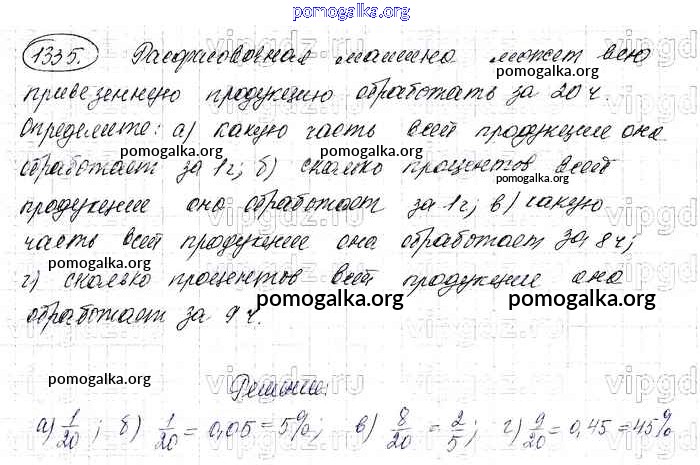 pomogalka.org
1335. Расфасовочная машина может всю
pomogalka.org pomogalka.org
привезенную продукцию обработать за 20 ч.
Определите: а) какую часть всей продукции она
pomogalka.org pomogalka.org
обработает за 1 ч; б) сколько процентов всей
pomogalka.org
продукции она обработает за 1 ч; в) какую
часть всей продукции она обработает за 8 ч;
pomogalka.org
г) сколько процентов всей продукции она
pomogalka.org pomogalka.org
обработает за 9 ч.
vipgdz.ru
pomogalka.org Решение:
а) 1/20; б) 1/20 = 0,05 = 5%; в) 8/20 = 2/5; г) 9/20 = 0,45 = 45%
pomogalka.org pomogalka.org